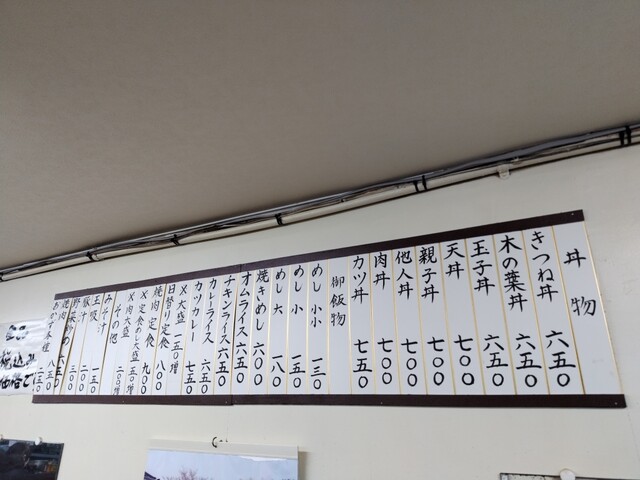 丼物
きつね丼 六五〇
木の葉丼 六五〇
玉子丼 六五〇
天丼 七〇〇
親子丼 七〇〇
他人丼 七〇〇
肉丼 七〇〇
カツ丼 七五〇
御飯物
めし 小小 一三〇
めし 小 一五〇
めし 大 一八〇
焼きめし 六〇〇
オムライス 六五〇
チキンライス 六五〇
カレーライス 六五〇
カツカレー 七五〇
〆大盛 一五〇増
日替り定食 八〇〇
焼肉定食 九〇〇
〆定食めし大盛 五〇増
〆肉大盛 二〇〇増
その他
みそ汁
豚汁 二〇〇
野菜 三〇〇